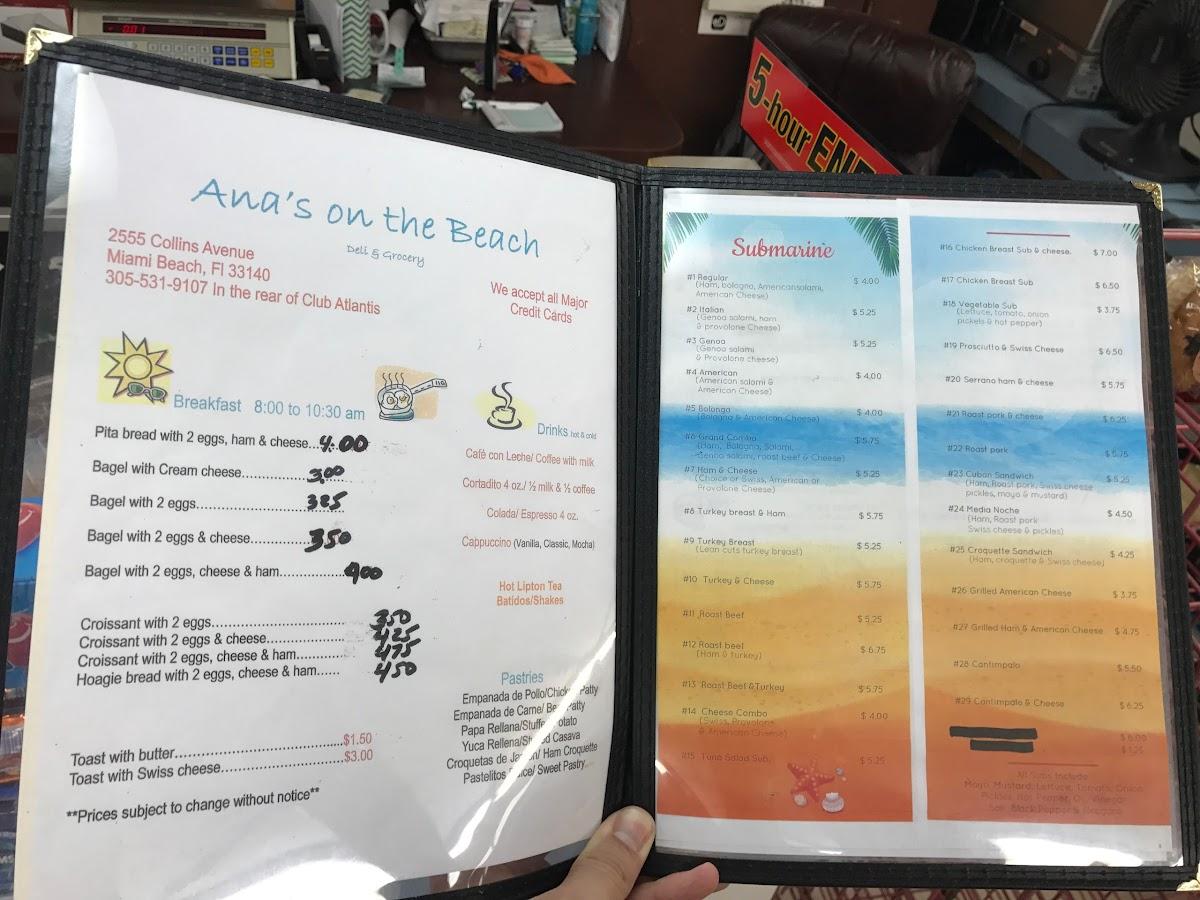 5-hour ENE
Ana's on the Beach
Deli & Grocery
2555 Collins Avenue
Miami Beach, Fl 33140
305-531-9107 In the rear of Club Atlantis
We accept all Major
Credit Cards
Breakfast 8:00 to 10:30 am
Pita bread with 2 eggs, ham & cheese...4.00
Bagel with Cream cheese..................3.00
Bagel with 2 eggs............................325
Bagel with 2 eggs & cheese..............350
Bagel with 2 eggs, cheese & ham................400
Croissant with 2 eggs................................350
Croissant with 2 eggs & cheese...................425
Croissant with 2 eggs, cheese & ham............475
Hoagie bread with 2 eggs, cheese & ham......450
Toast with butter.............................................$1.50
Toast with Swiss cheese................................$3.00
**Prices subject to change without notice**
Drinks hot & cold
Café con Leche/ Coffee with milk
Cortadito 4 oz./ ½ milk & ½ coffee
Colada/ Espresso 4 oz.
Cappuccino (Vanilla, Classic, Mocha)
Hot Lipton Tea
Batidos/Shakes
Pastries
Empanada de Pollo/Chicken Patty
Empanada de Carne/ Patty
Papa Rellana/Stuffed Potato
Yuca Rellena/ Casava
Croquetas de / Ham Croquette
Pastelitos / Sweet Pastry
Submarine
#1 Regular $ 4.00
(Ham, bologna, Americansolami,
American Cheese)
#2 Italian $ 5.25
(Genoa salami, ham
& provolone Cheese)
#3 Genoa $ 5.25
(Genoa salami
& Provolone cheese)
#4 American $ 4.00
(American salami &
American Cheese)
#5 Bolonga $ 4.00
(Bologna & American Cheese)
#6 Grand Combo $ 5.75
(Ham, Bologna, Salami,
Genoa salami, roast beef & Cheese)
#7 Ham & Cheese $ 5.25
(Choice or Swiss, American or
Provolone Cheese)
#8 Turkey breast & Ham $ 5.75
#9 Turkey Breast $ 5.25
(Lean cuts turkey breast)
#10 Turkey & Cheese $ 5.75
#11 Roast Beef $ 5.25
#12 Roast beef $ 6.75
(Ham & turkey)
#13 Roast Beef &Turkey $ 5.75
#14 Cheese Combo $ 4.00
(Swiss, Provolone
& American Cheese)
#15 Tuna Salad Sub, $ 5.25
#16 Chicken Breast Sub & cheese. $ 7.00
#17 Chicken Breast Sub $ 6.50
#18 Vegetable Sub $ 3.75
(Lettuce, tomato, onion
pickels & hot pepper)
#19 Prosciutto & Swiss Cheese $ 6.50
#20 Serrano ham & cheese $ 5.75
#21 Roast pork & cheese $ 6.25
#22 Roast pork $ 5.75
#23 Cuban Sandwich $ 5.25
(Ham, Roast pork, Swiss cheese
pickles, mayo & mustard)
#24 Media Noche $ 4.50
(Ham, Roast pork
Swiss cheese & pickles)
#25 Croquette Sandwich $ 4.25
(Ham, croquette & Swiss cheese)
#26 Grilled American Cheese $ 3.75
#27 Grilled Ham & American Cheese $ 4.75
#28 Cantimpalo $ 5.50
#29 Cantimpalo & Cheese $ 6.25
All Subs Include
Mayo, Mustard, Lettuce, Tomato, Onion
Pickles, Hot Pepper, Oil, Vinegar
Salt, Black Pepper &